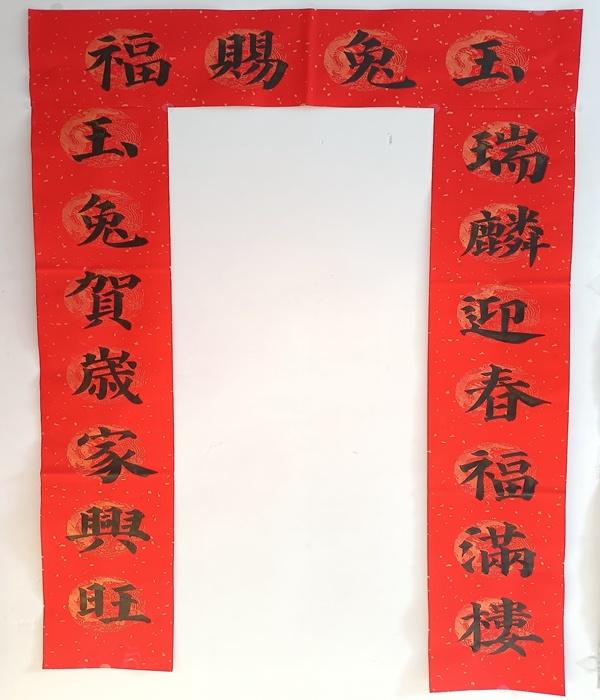 玉兔賜福
瑞麟迎春福滿樓
玉兔賀歲家興旺